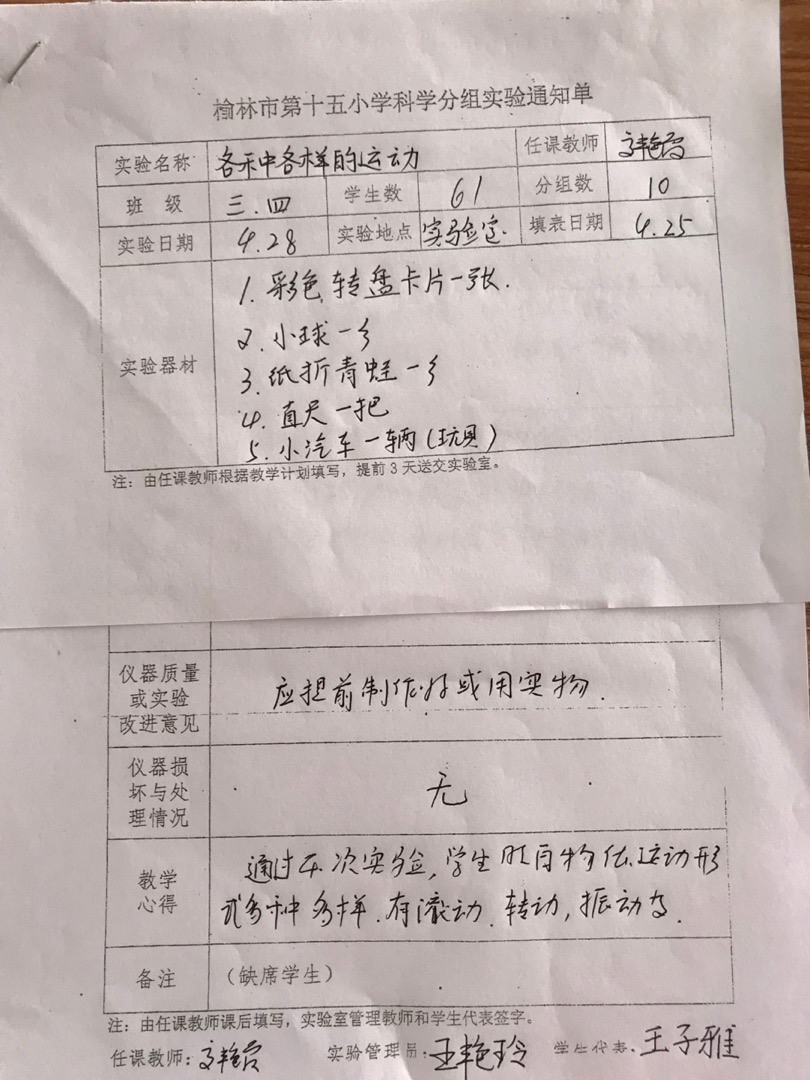 榆林市第十五小学科学分组实验通知单
实验名称 各种各样的运动 任课教师
班 级 三.四 学生数 61 分组数 10
实验日期 4.28 实验地点 实验室 填表日期 4.25
1. 彩色转盘卡片一张.
2. 小球一个
实验器材
3. 纸折青蛙一个
4. 直尺一把
5. 小汽车一辆(玩具)
注：由任课教师根据教学计划填写，提前3天送交实验室。
仪器质量
或实验
改进意见
应提前制作好或用实物.
仪器损
坏与处
理情况
无
教学
心得
通过本次实验,学生明白物体运动形
式多种多样.有滚动.转动,振动等.
备注 （缺席学生）
注：由任课教师课后填写，实验室管理教师和学生代表签字。
任课教师: 实验管理员: 王艳玲 学生代表: 王子雅